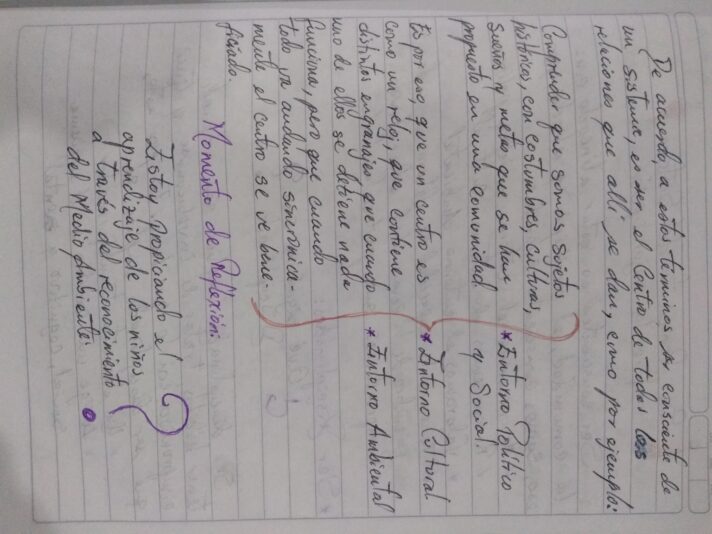 De acuerdo, a estos terminos ser consciente de
un sistema, es ser el Centro de todas las
relaciones que alli se dan, como por ejemplo:
Comprender que somos sujetos
históricos, con costumbres, culturas,
sueños y metas que se han
propuesto en una comunidad.
Es por eso que un centro es
como un reloj, que contiene
distintos engranajes que cuando
uno de ellos se detiene nada
funciona, pero que cuando
todo va andando sincronica-
mente el centro se ve bene-
ficiado.
* Entorno Político
y Social.
* Entorno Cultural
* Entorno Ambiental
Momento de Reflexión:
Estoy propiciando el
aprendizaje de los niños
a través del reconocimiento
del Medio Ambiente?